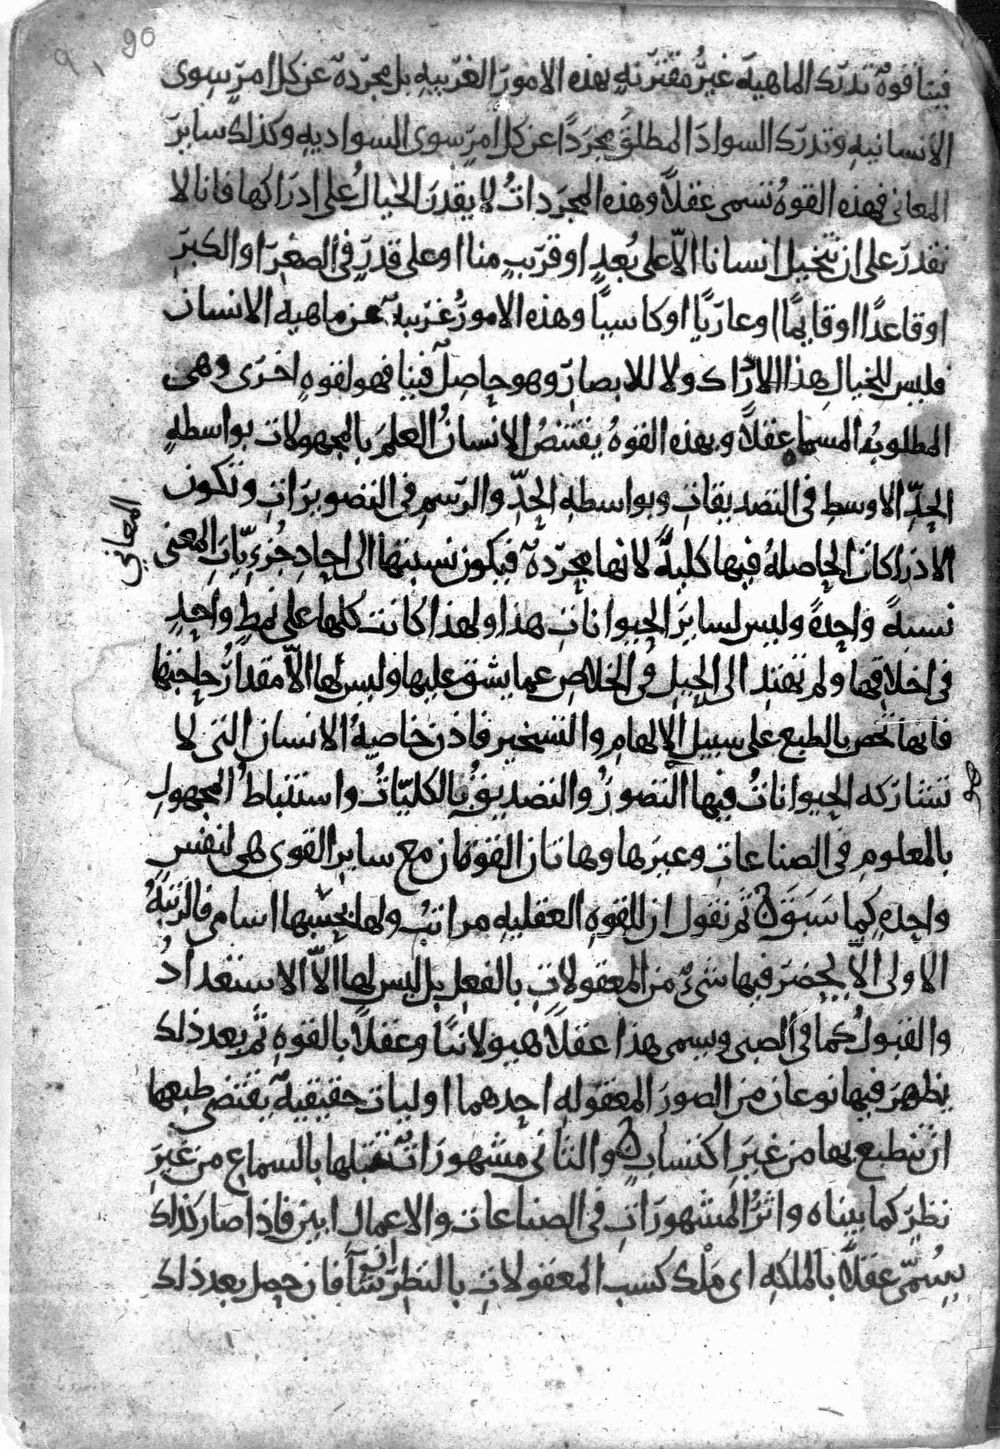 90
فينا قوة تدرك الماهية غير مقترنةٍ بهذه الامور الغريبه بل مجردة عن كل امر سوى
الانسانيه وتدرك السواد المطلق مجردًا عن كل امر سوى السواديه وكذلك ساير
المعاني فهذه القوه تسمى عقلاً وهذه المجردات لا يقدر الخيال على ادراكها فانا لا
نقدر على ان نتخيل انسانا الّا على بُعدٍ او قربٍ منا او على قدرٍ في الصغر او الكبر
او قاعدًا او قايمًا او عاريًا او كاسيًا وهذه الامور غريبة عن ماهيه الانسان
فليس للخيال هذا الادراك ولا للابصار وهو حاصل فينا فهو لقوه اخرى وهى
المطلوبه المسماه عقلاً وبهذه القوه يقتنص الانسان العلم بالمجهولات بواسطه
الحدّ الاوسط في التصديقات وبواسطه الحدّ والرسم في التصويرات وتكون
الادراكات الحاصله فيها كليةً لانها مجردة فيكون نسبتها الى احاد جزءيّات المعنى
المعاني
نسبةً واحدةً وليس لساير الحيوانات هذا ولهذا كانت كلها على نمطٍ واحدٍ
في اخلاقها ولم تهتد الى الحيل في الخلاص عما يشق عليها وليس لها الّا مقدار حاجتها
فانها تخص بالطبع على سبيل الالهام والتسخير فاذن خاصية الانسان التي لا
تشاركه الحيوانات فيها التصور والتصديق بالكليّات واستنباط المجهول
بالمعلوم في الصناعات وغيرها وهاتان القوتان مع ساير القوى هي لنفس
واحده كما سبق ثم نقول ان للقوه العقليه مراتب ولها بحسبها اسامى فالرتبة
الاولى الّا يحضر فيها شيء من المعقولات بالفعل بل ليس لها الّا الاستعداد
والقبول كما في الصبى وسمى هذا عقلاً هيولانيًا وعقلاً بالقوه ثم بعد ذلك
يظهر فيها نوعان من الصور المعقوله احدهما اوليات حقيقية يقتضى طبعها
ان تنطبع بها من غير اكتساب والثاني مشهورات تقبلها بالسماع من غير
نظر كما بيناه واثر المشهورات في الصناعات والاعمال ابين فاذا صار كذلك
يسمّى عقلاً بالملكه اى ملك كسب المعقولات بالنظر ان شآ فان حصل بعد ذلك